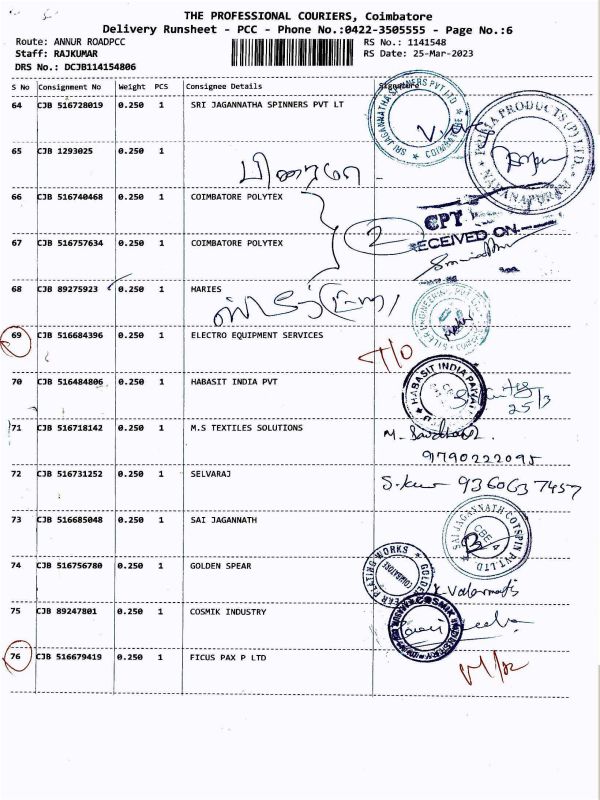 THE PROFESSIONAL COURIERS, Coimbatore
Delivery Runsheet - PCC - Phone No.:0422-3505555 - Page No.:6
Route: ANNUR ROADPCC
RS No.: 1141548
Staff: RAJKUMAR
RS Date: 25-Mar-2023
DRS No.: DCJB114154806
S No Consignment No Weight PCS Consignee Details Signature
64 CJB 516728019 0.250 1 SRI JAGANNATHA SPINNERS PVT LT
SRI JAGANNATHA SPINNERS PVT LTD
COIMBATORE
PRODUCTS (P) LTD.
65 CJB 1293025 0.250 1
66 CJB 516740468 0.250 1 COIMBATORE POLYTEX
2
CPT
RECEIVED ON
67 CJB 516757634 0.250 1 COIMBATORE POLYTEX
68 CJB 89275923 0.250 1 HARIES
69 CJB 516684396 0.250 1 ELECTRO EQUIPMENT SERVICES
T/O
70 CJB 516484806 0.250 1 HABASIT INDIA PVT
HABASIT INDIA
25/3
71 CJB 516718142 0.250 1 M.S TEXTILES SOLUTIONS
9790222095
72 CJB 516731252 0.250 1 SELVARAJ
9360637457
73 CJB 516685048 0.250 1 SAI JAGANNATH
SAI JAGANNATH COTSPIN PVT. LTD.
CBE 4
74 CJB 516756780 0.250 1 GOLDEN SPEAR
GOLDEN SPEAR PLATING WORKS
COIMBATORE
75 CJB 89247801 0.250 1 COSMIK INDUSTRY
COSMIK
76 CJB 516679419 0.250 1 FICUS PAX P LTD